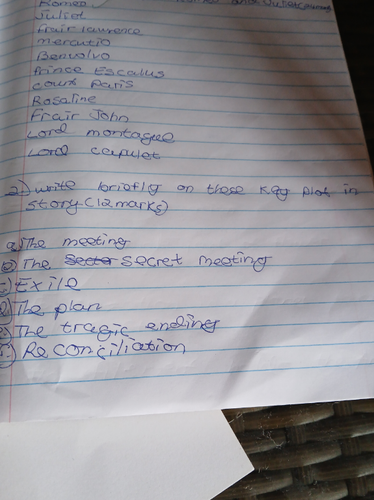 Romeo
Juliet
Frair laurence
mercutio
Benvolvo
Prince Escalus
count Paris
Rosaline
Frair John
Lord montague
Lord capulet
2) write briefly on these key plot in
story (12 marks)
a) The meeting
b) The secret meeting
c) Exile
d) The plan
e) The tragic ending
Reconciliation